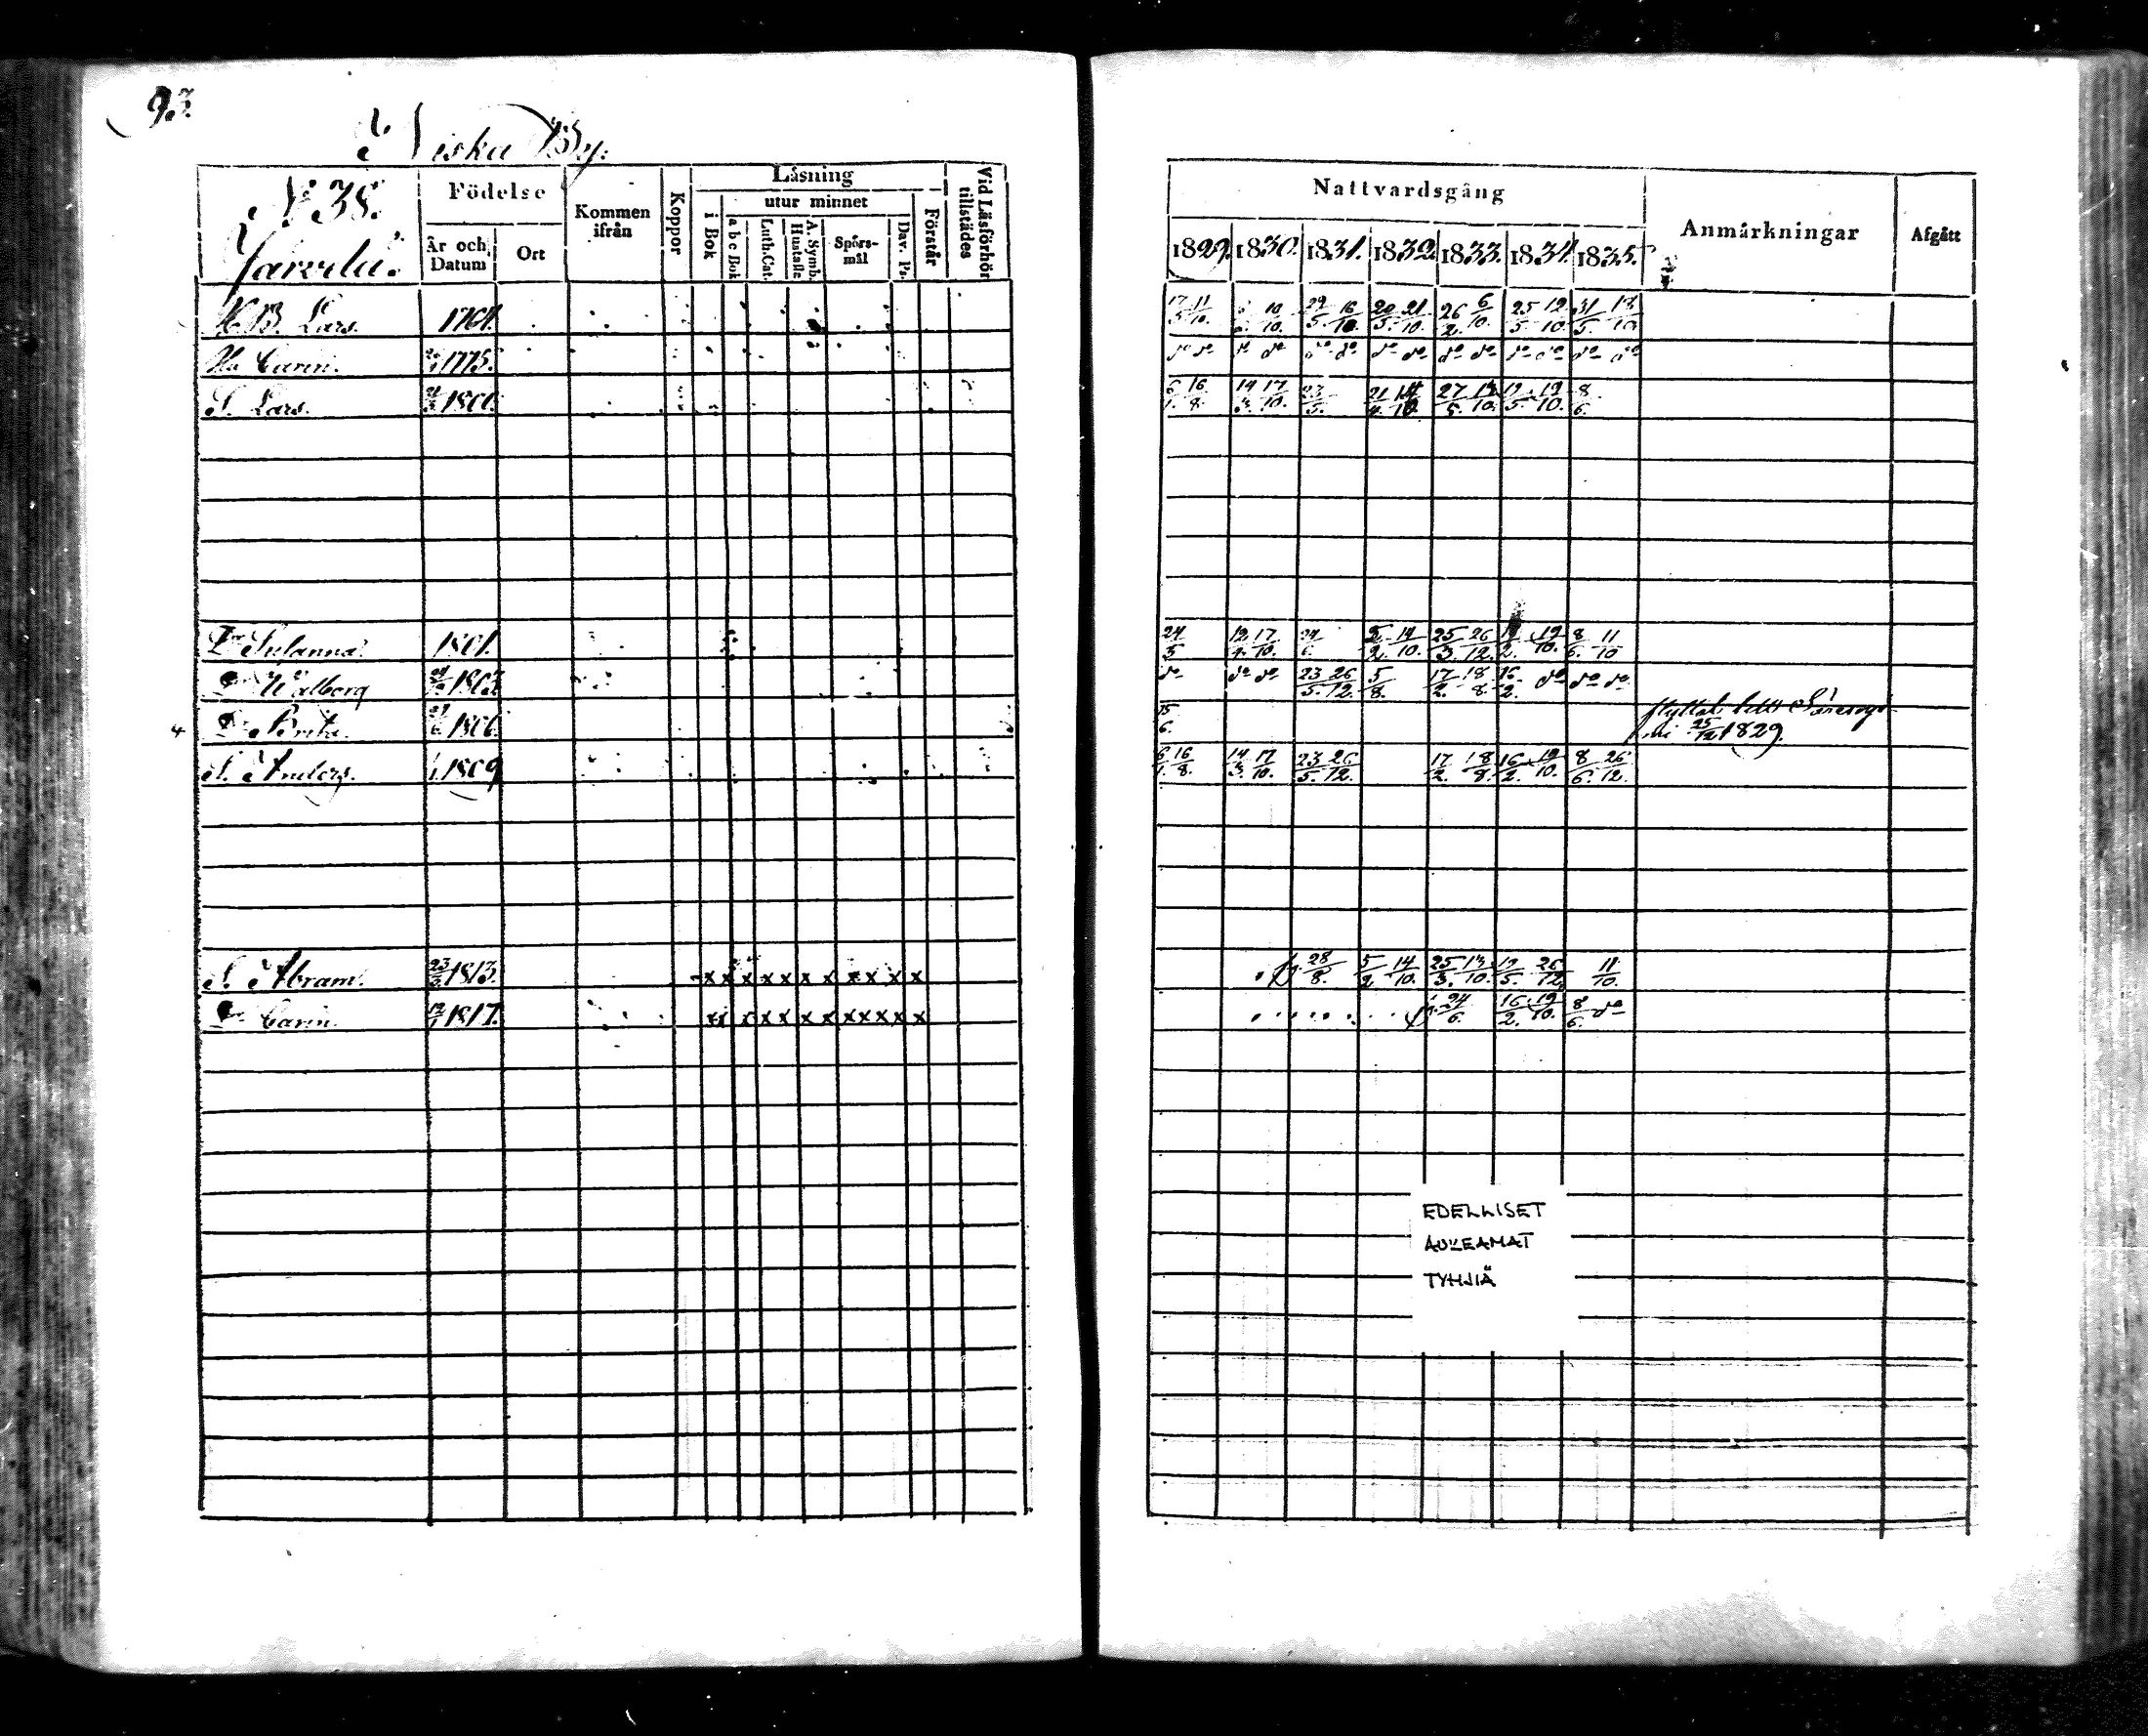 93.
Niska By.
Nº 38.
Järvelä.
Födelse
År och Datum
Ort
Kommen ifrån
Koppor
Läsning
i Bok
utur minnet
a b c Bok
Luth. Cat.
A. Symb. Hustafle
Spörsmål
Dav. Ps.
Förstår
Vid Läsförhör tillstädes
H. B. Lars. 1764.
Hu Carin. 1775.
S. Lars. 1800.
Dr Susanna. 1801.
Dr Walborg 1803.
4 Dr Brita. 1806.
S. Anders. 1809
S. Abram. 23 1813. x x x x x x x x x x x
Dr Carin. 1817. x x x x x x x x x x
Nattvardsgång
Anmärkningar
Afgått
1829. 1830. 1831. 1832. 1833. 1834. 1835.
17/5 11/10. 10/10. 29/5 16/10. 20/5. 21/10. 26/2. 6/10. 25/5 12/10. 31/5. 18/10.
dº dº dº dº dº dº dº dº dº dº dº dº dº dº
6/1. 16/8. 14/3. 17/10. 23/5. 21/4. 14/10. 27/5. 13/10. 12/5. 19/10. 8/6.
24/5 12/4. 17/10. 5/2. 14/10. 25/3. 26/12. 19/10. 8/6. 11/10
dº dº dº 23/5. 26/12. 5/8. 17/2. 18/8. 16/2. dº dº dº
15/6. flyttat till
25/12 1829
6/1. 16/8. 14/3. 17/10. 23/5. 26/12. 17/2. 18/8. 16/2. 19/10. 8/6. 26/12.
28/8. 5/2 14/10. 25/3. 13/10. 12/5. 26/12 11/10.
24/6. 16/2. 19/10. 8/6. dº
EDELLISET
AUKEAMAT
TYHJIÄ